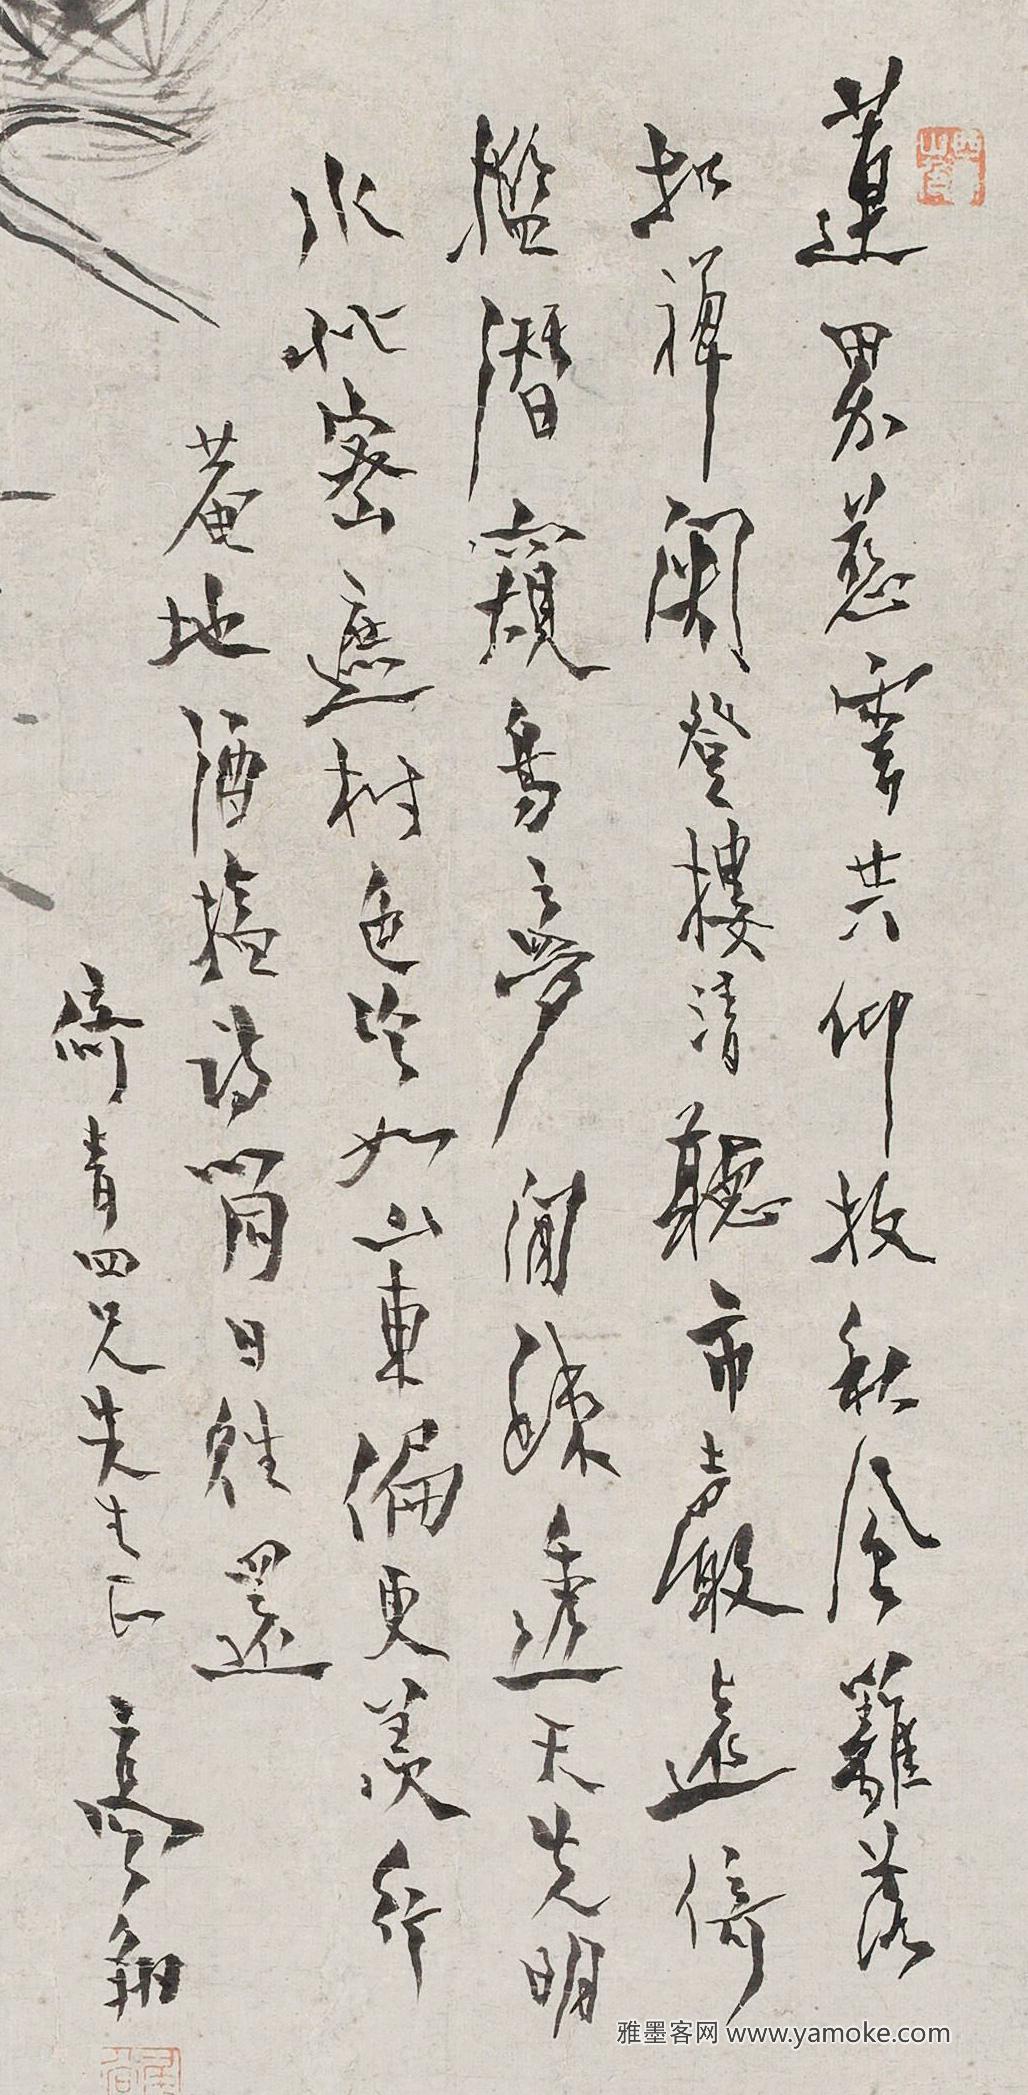 蓮界慈雲共仰扳秋風籬落
扣禪關登樓清聽市聲遠倚
檻潛窺鳥夢閒疎透天光明
水比密遮樹色冷如山東偏更羨行
菴地酒榼詩筩日往還
青四兄先生正 高翔
雅墨客网 www.yamoke.com